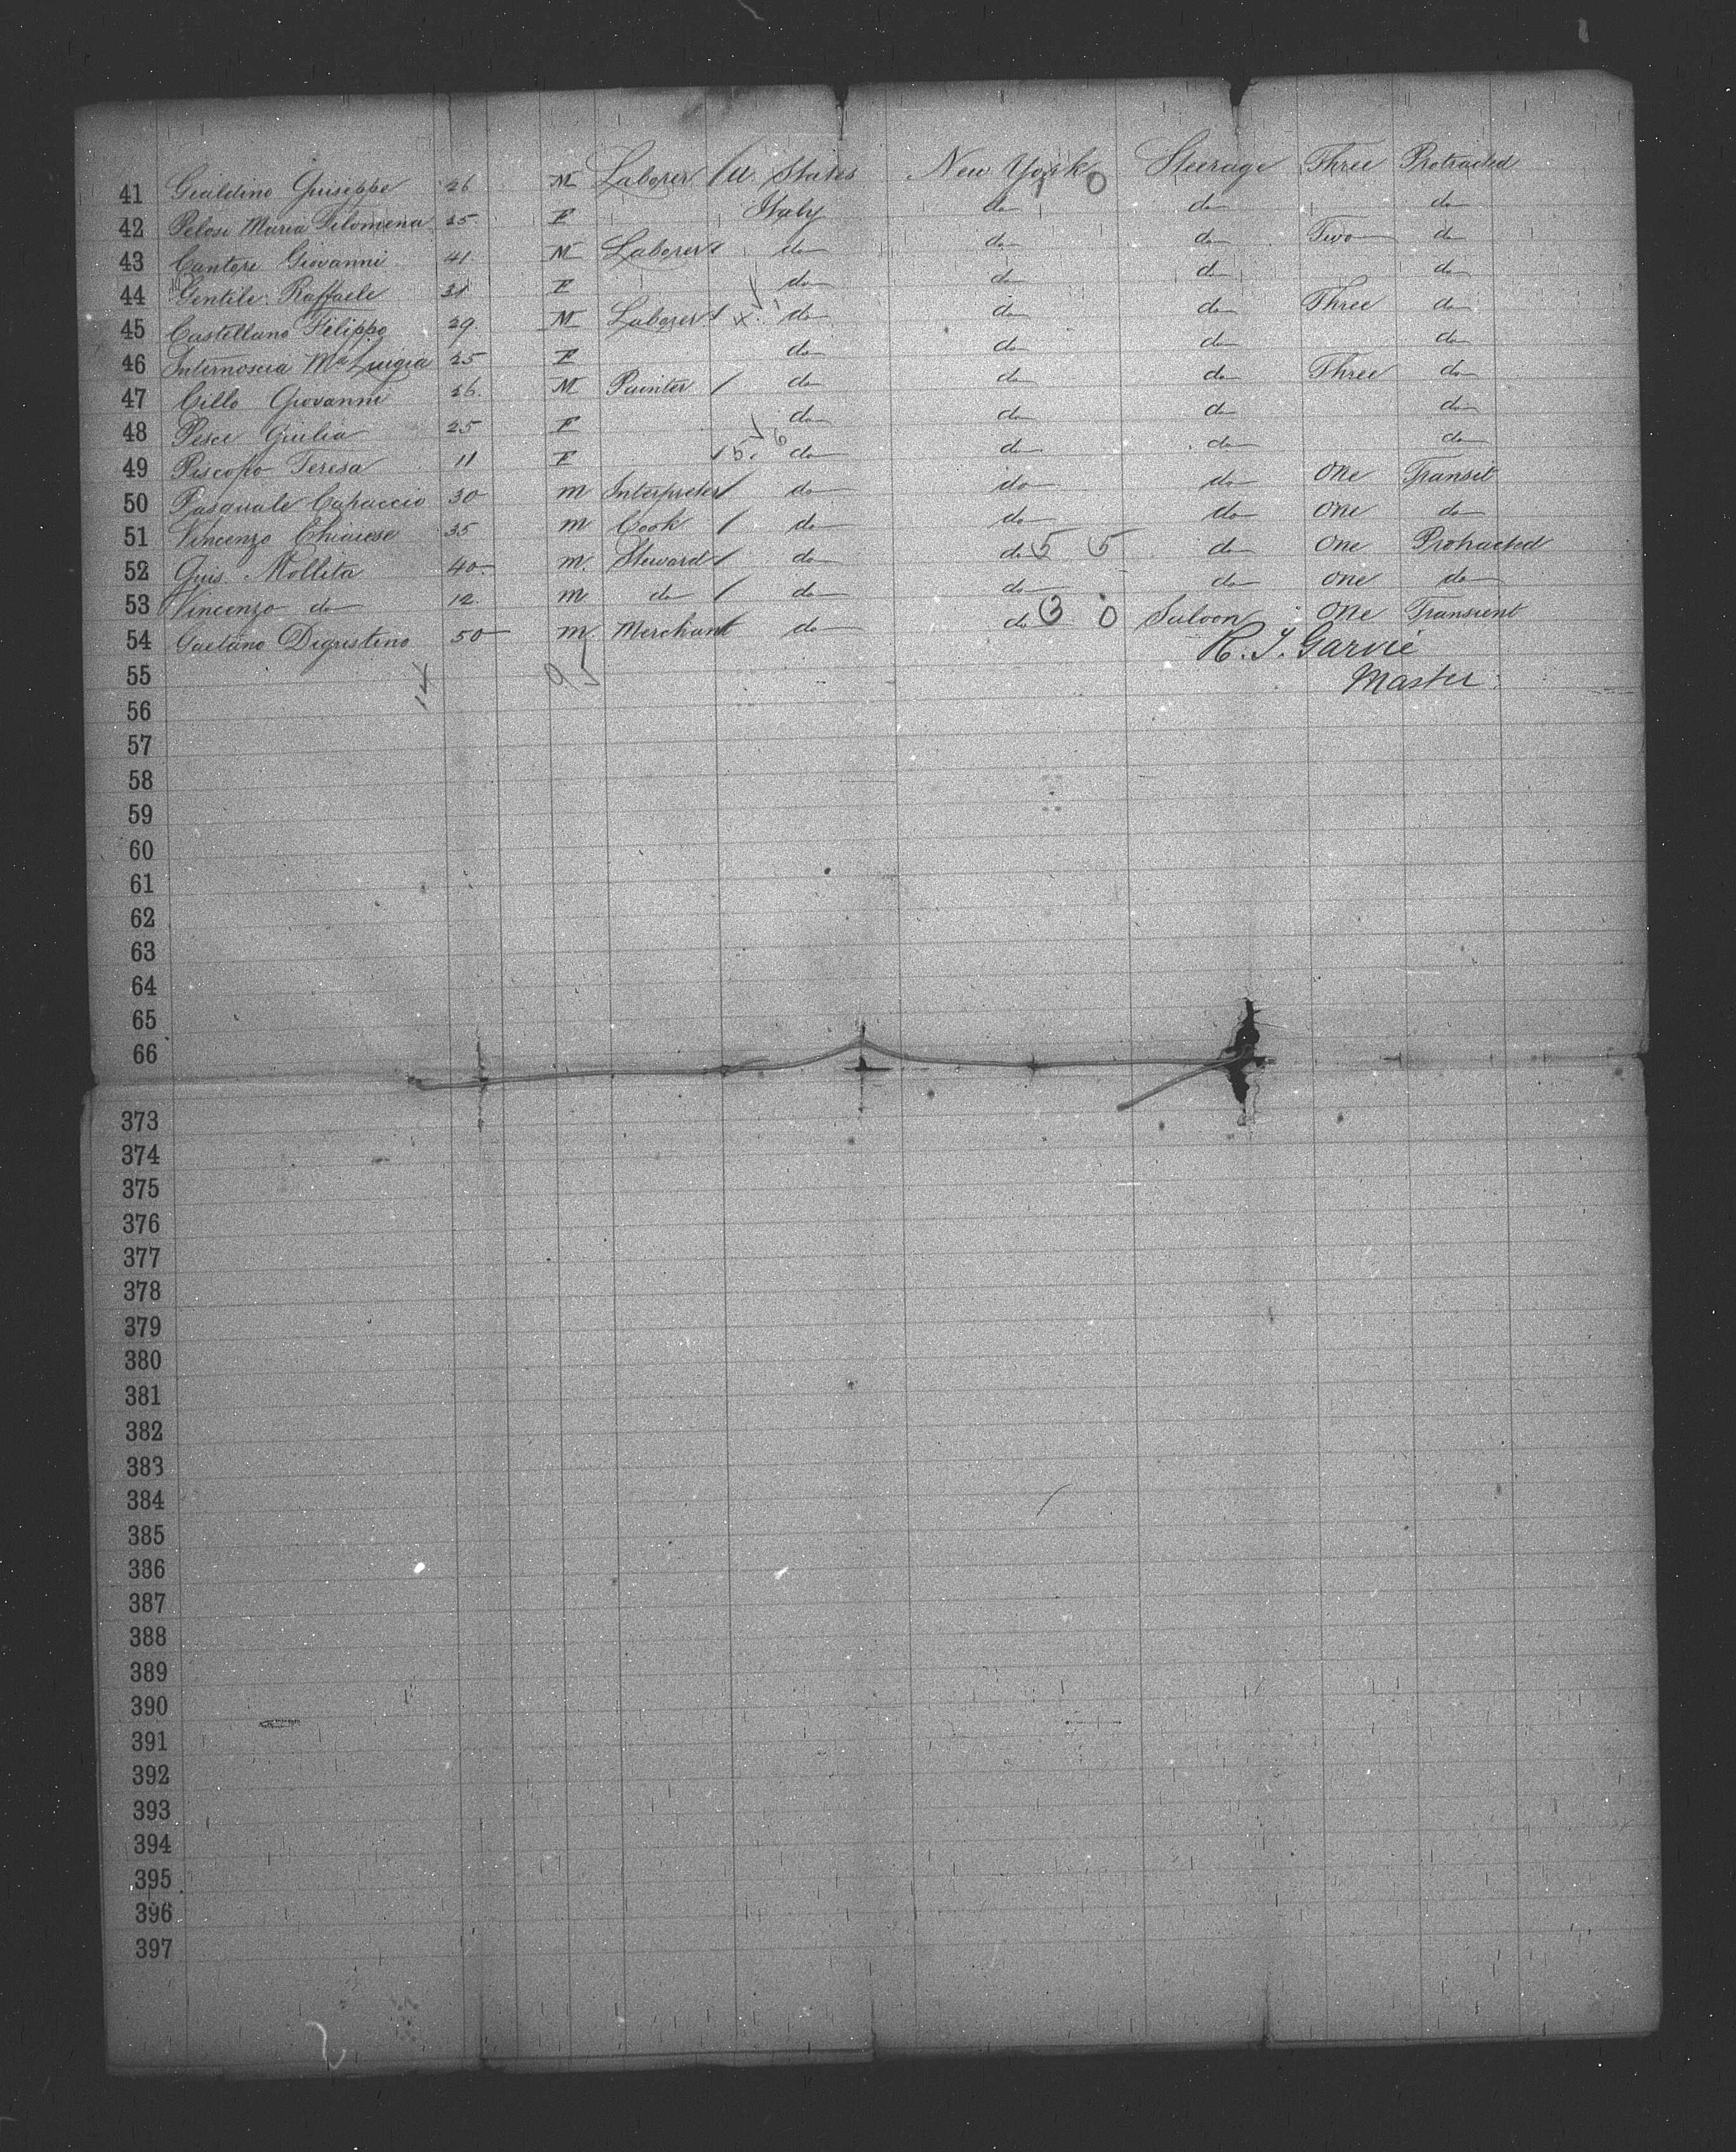 41 Gialdino Giuseppe 26 M Laborer / U. States New York 0 Steerage Three Protracted
42 Pelosi Maria Filomena 25 F Italy do do do
43 Cantore Giovanni 41 M Laborer / do do do Two do
44 Gentile Raffaele 31 F do do do do
45 Castellano Filippo 29 M Laborer / x do do do Three do
46 Internoscia Ma Luigia 25 F do do do do
47 Cillo Giovanni 26 M Painter / do do do Three do
48 Pesce Giulia 25 F do do do do
49 Piscopo Teresa 11 F do do do do
50 Pasquale Capaccio 30 m Interpreter / do do do One Transit
51 Vincenzo Chiaiese 35 m Cook / do do do One do
52 Gius. Mollita 40 m. Steward / do do 5 5 do One Protracted
53 Vincenzo do 12 m do / do do do One do
54 Gaetano Digustino 50 m. Merchant do do 3 0 Saloon One Transient
R. J. Garvie
55
Master
56
57
58
59
60
61
62
63
64
65
66
373
374
375
376
377
378
379
380
381
382
383
384
385
386
387
388
389
390
391
392
393
394
395
396
397